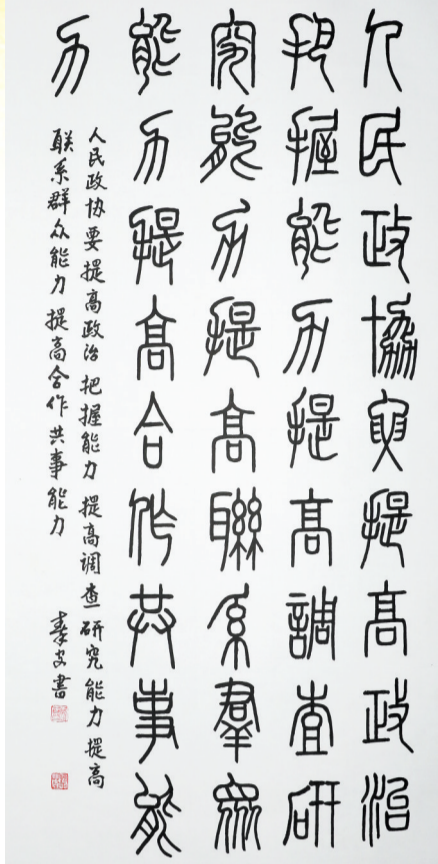 人民政協要提高政治
把握能力提高調查研
究能力提高聯系羣眾
能力提高合作共事能
力
人民政协要提高政治 把握能力 提高调查研究能力 提高
联系群众能力 提高合作共事能力 書